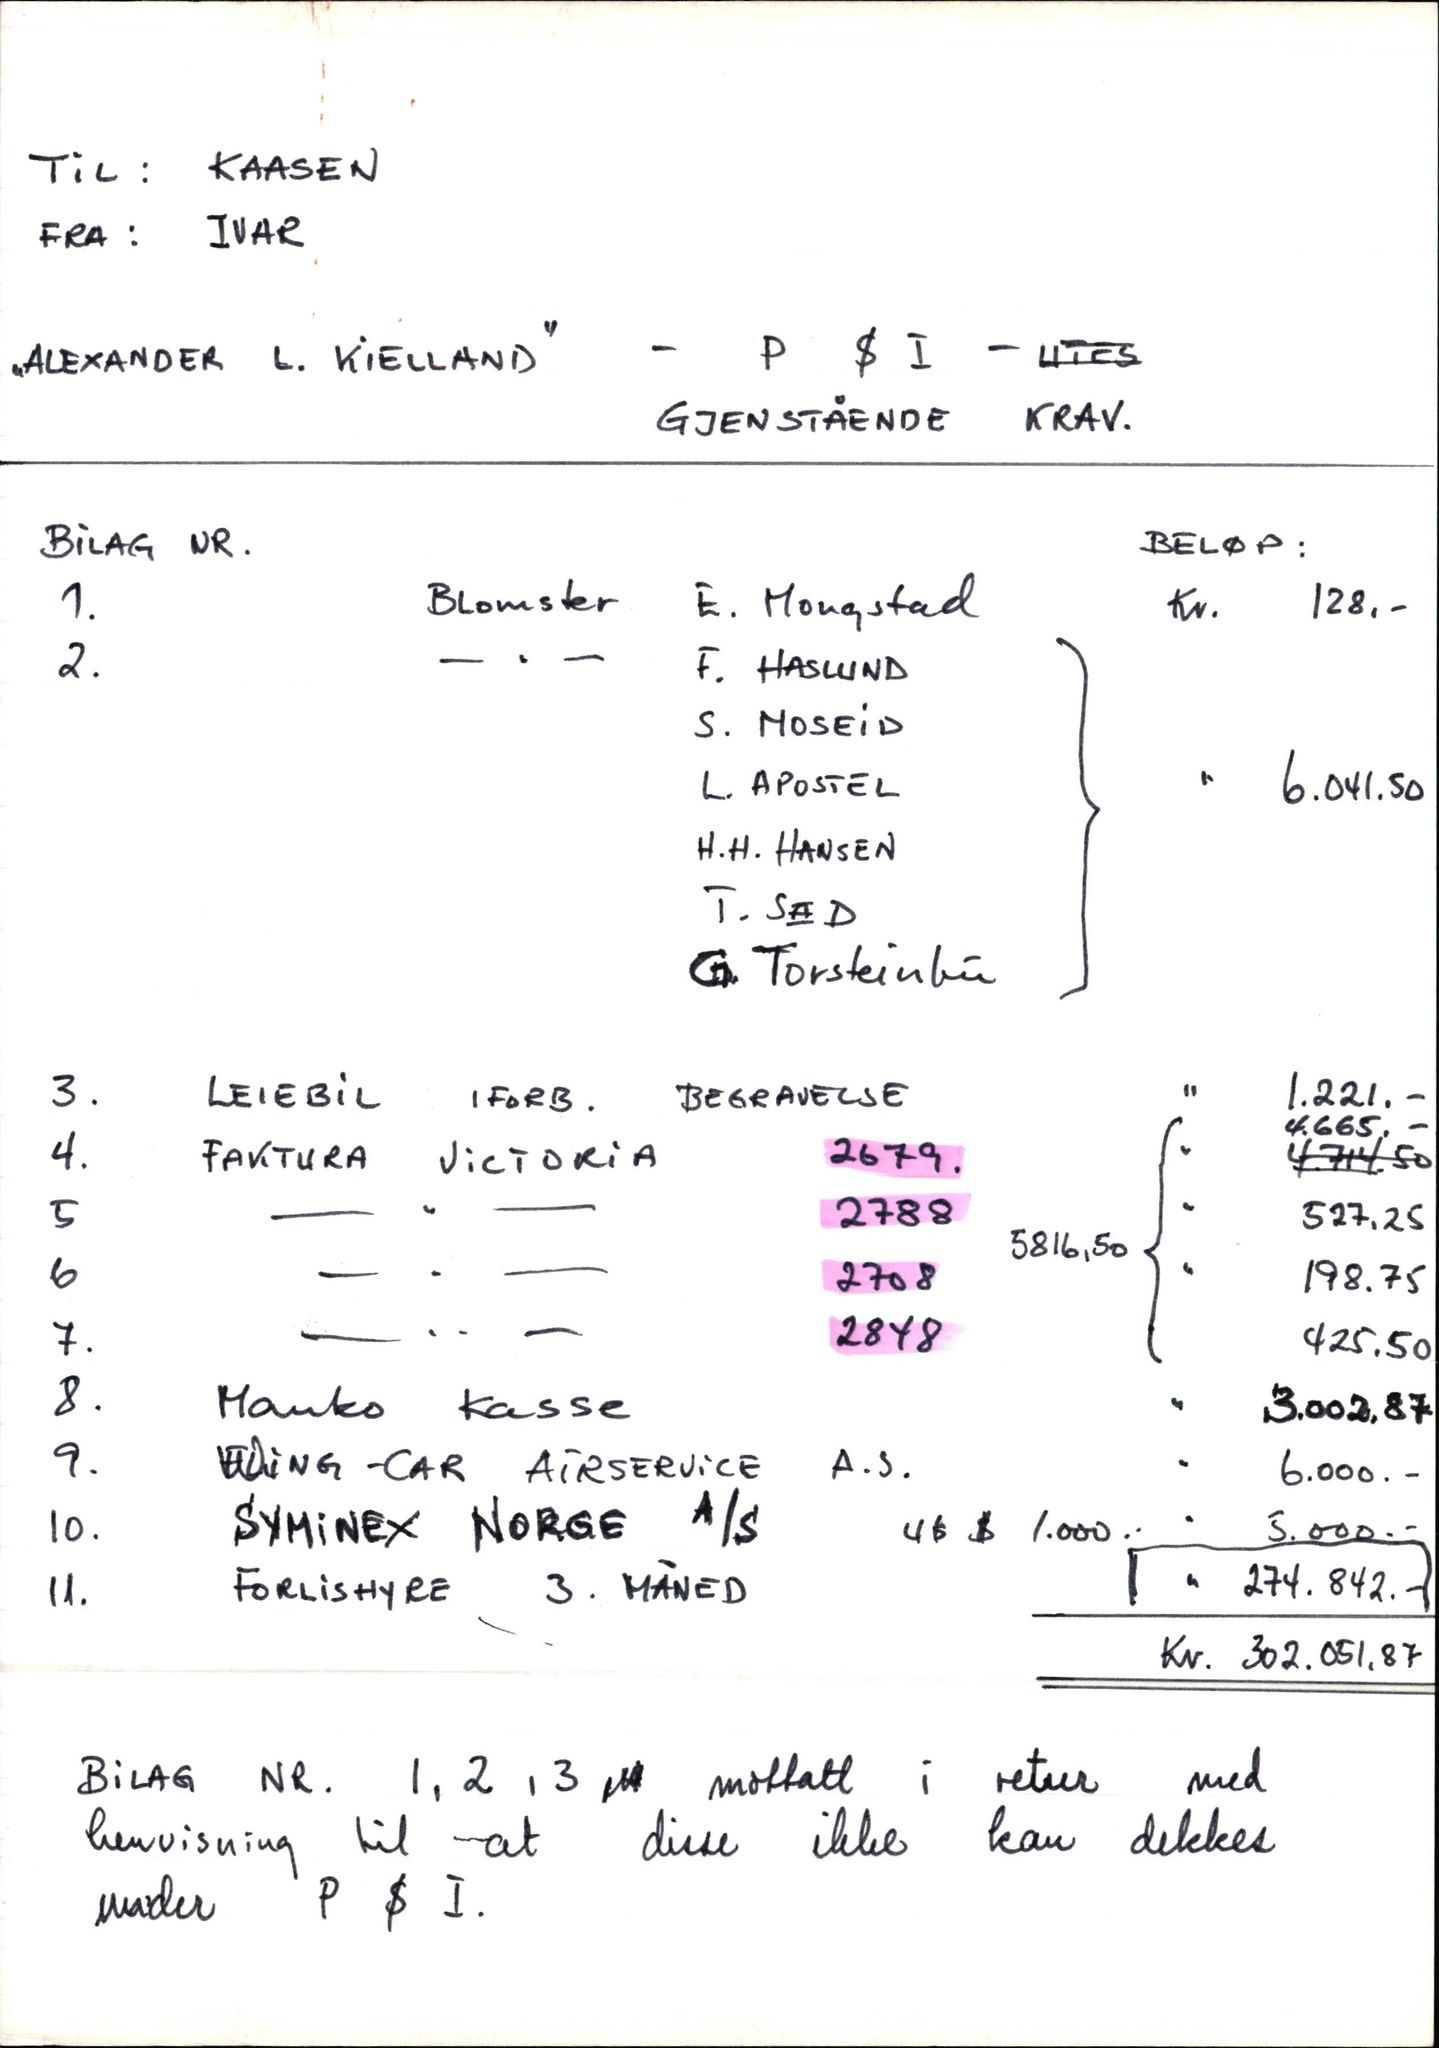 TIL: KAASEN
FRA: IVAR
"ALEXANDER L. KIELLAND" - P & I - UTES
GJENSTÅENDE KRAV.
BILAG NR. BELØP:
1. Blomster E. Mongstad Kr. 128.-
2. — " — F. HASLUND
S. MOSEID
L. APOSTEL " 6.041.50
H.H. HANSEN
T. SÆD
G. Torsteinbü
3. LEIEBIL IFORB. BEGRAVELSE " 1.221.-
4.665.-
4. FAKTURA VICTORIA 2679. " 4.714.50
5 — " — 2788 " 527.25
5816,50
6 — " — 2708 " 198.75
7. — " — 2848 425.50
8. Manko kasse " 3.002,87
9. WING-CAR AIRSERVICE A.S. " 6.000.-
10. SYMINEX NORGE A/S US $ 1.000.- " 5.000.-
11. FORLISHYRE 3. MÅNED " 274.842.-
Kr. 302.051,87
BILAG NR. 1, 2, 3 mottatt i retur med
henvisning til at disse ikke kan dekkes
under P & I.